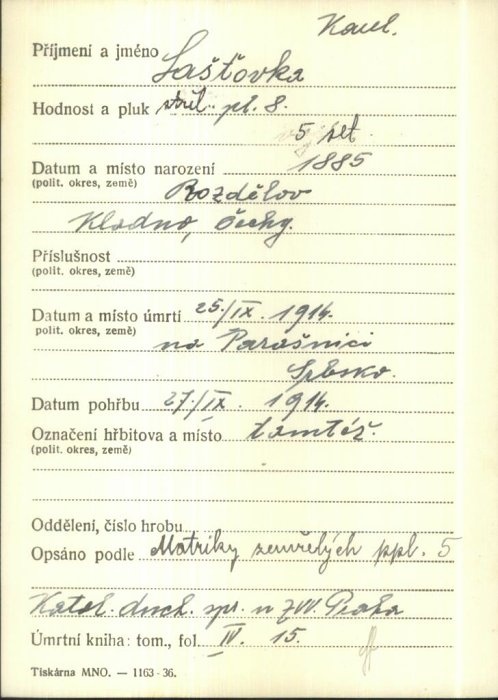 Karel.
Příjmení a jméno Lašťovka
Hodnost a pluk střel. pl. 8.
5 set.
Datum a místo narození 1885
(polit. okres, země) Rozdělov
Kladno, Čechy.
Příslušnost
(polit. okres, země)
Datum a místo úmrtí 25/IX. 1914.
polit. okres, země) na Parašnici
Srbsko.
Datum pohřbu 27/IX. 1914.
Označení hřbitova a místo tamtéž.
(polit. okres, země)
Oddělení, číslo hrobu
Opsáno podle Matriky zemřelých ppl. 5
Katol. duch. spr. u ZVV. Praha
Úmrtní kniha: tom., fol. IV. 15.
Tiskárna MNO. — 1163-36.